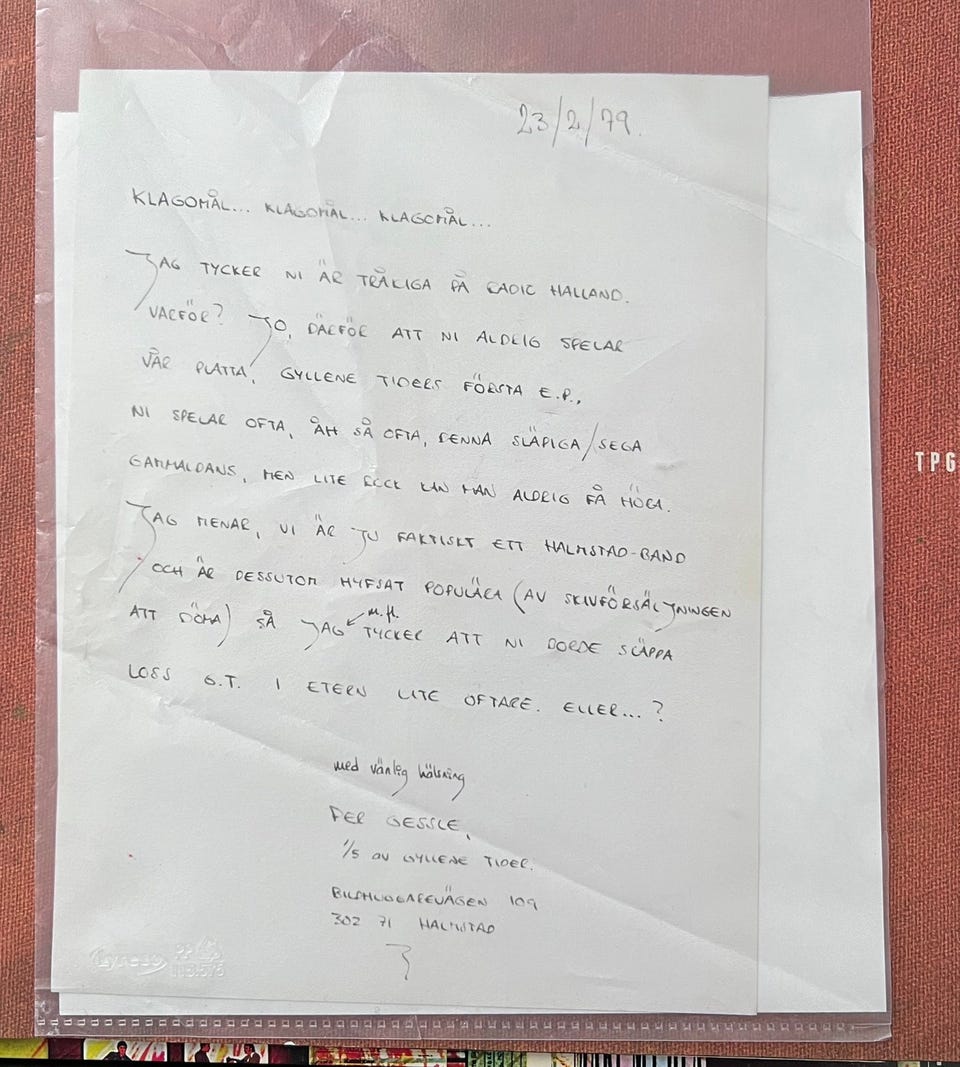 23/2/79.
KLAGOMÅL... KLAGOMÅL... KLAGOMÅL...
JAG TYCKER NI ÄR TRÅKIGA PÅ RADIO HALLAND.
VARFÖR? JO, DÄRFÖR ATT NI ALDRIG SPELAR
VÅR PLATTA, GYLLENE TIDERS FÖRSTA E.P.,
NI SPELAR OFTA, ÅH SÅ OFTA, DENNA SLÄPIGA/SEGA
GAMMALDANS, MEN LITE ROCK KAN MAN ALDRIG FÅ HÖRA.
JAG MENAR, VI ÄR JU FAKTISKT ETT HALMSTAD-BAND
OCH ÄR DESSUTOM HYFSAT POPULÄRA (AV SKIVFÖRSÄLJNINGEN
m.fl.
ATT DÖMA) SÅ JAG TYCKER ATT NI BORDE SLÄPPA
LOSS G.T. I ETERN LITE OFTARE. ELLER...?
med vänlig hälsning
PER GESSLE,
1/5 AV GYLLENE TIDER.
BILDHUGGAREVÄGEN 109
302 71 HALMSTAD
TPG
Lyreco PP